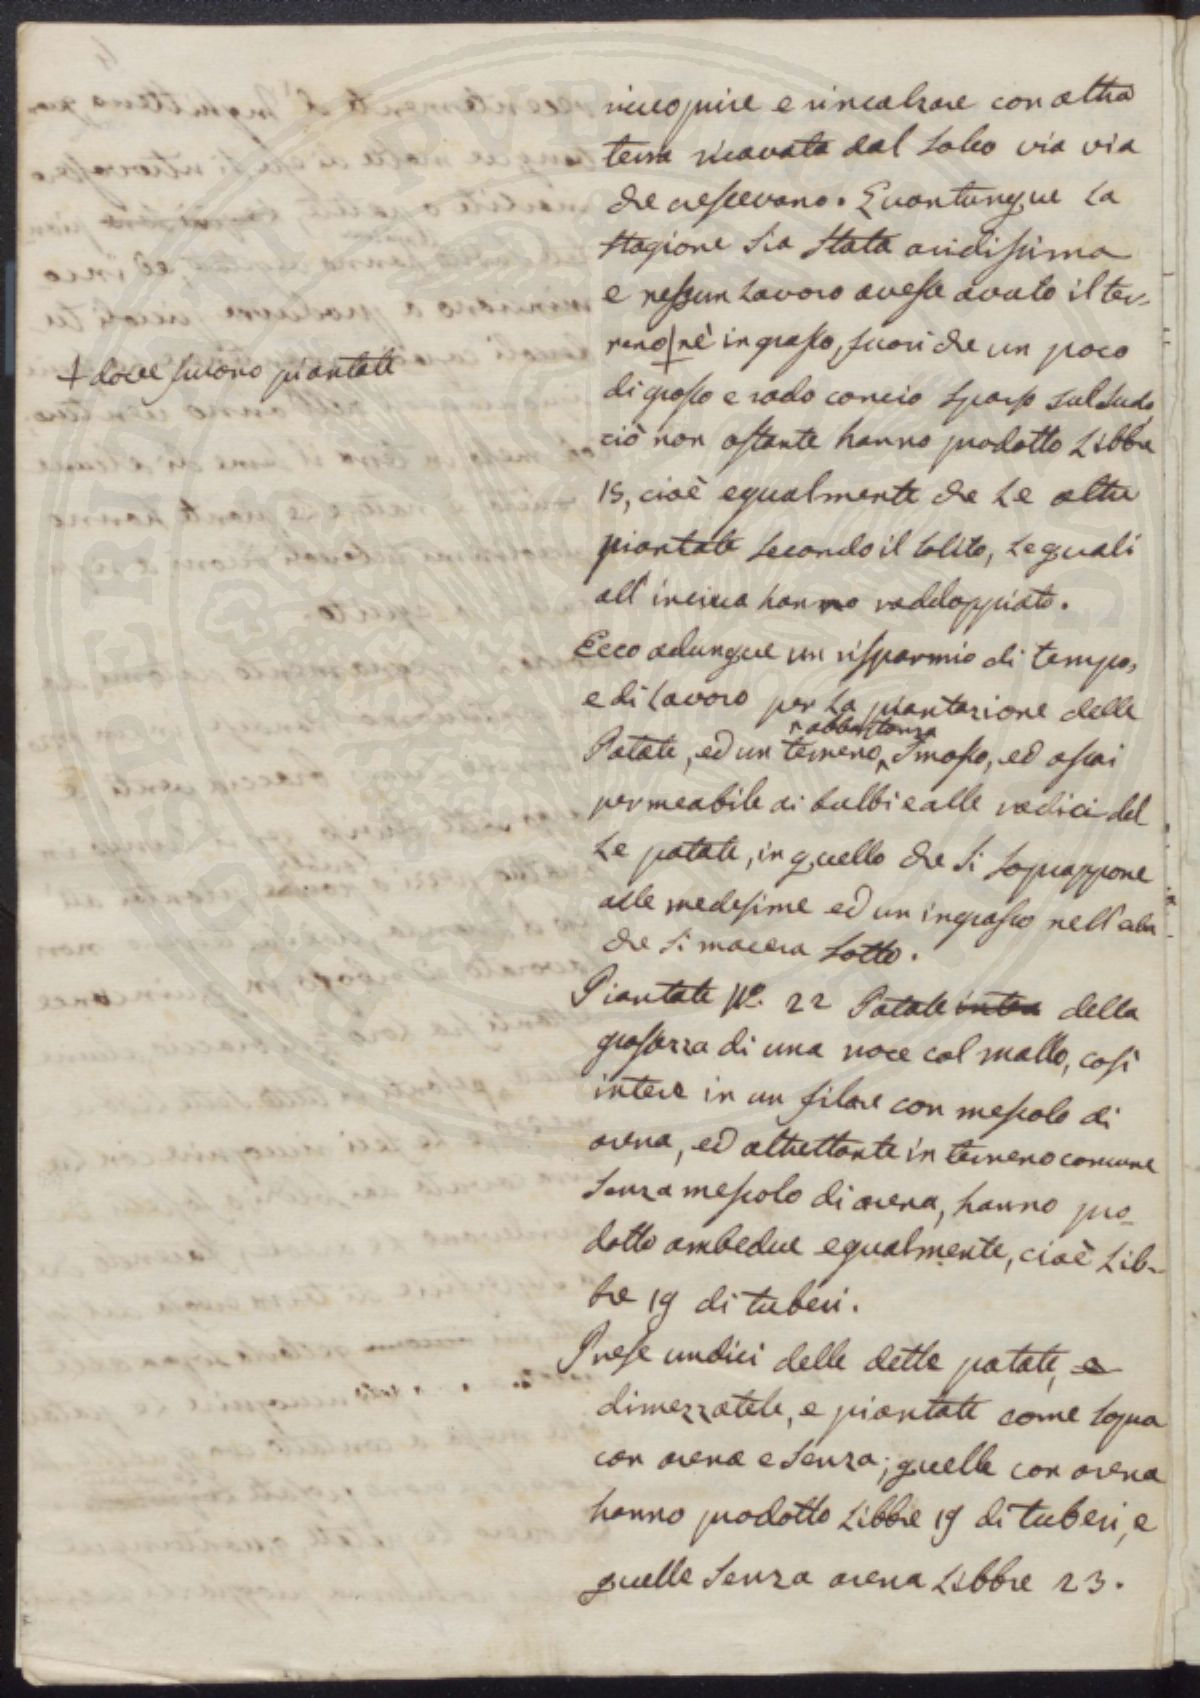 ricuoprire e rincalzare con altra
terra ricavata dal solco via via
che crescevano. Quantunque la
stagione sia stata aridissima
e nessun lavoro avesse avuto il ter-
reno + nè ingrasso, fuori che un poco
+ dove furono piantate
di grosso e rado concio sparso sul sudo,
ciò non ostante hanno prodotto Libbre
15, cioè egualmente che le altre
piantate secondo il solito, le quali
all'incirca hanno raddoppiato.
Ecco adunque un risparmio di tempo,
e di lavoro per la piantazione delle
Patate, ed un terreno abbastanza smosso, ed assai
permeabile ai bulbi e alle radici del
le patate, in quello che si soprappone
alle medesime ed un ingrasso nell'erba
che si macera sotto.
Piantate N.o 22 Patate intere della
grossezza di una noce col mallo, così
intere in un filare con mescolo di
arena, ed altrettante in terreno comune
senza mescolo di arena, hanno pro-
dotto ambedue egualmente, cioè Lib-
bre 19 di tuberi.
Prese undici delle dette patate, e
dimezzatele, e piantate come sopra
con arena e senza; quelle con arena
hanno prodotto Libbre 19 di tuberi, e
quelle senza arena Libbre 23.